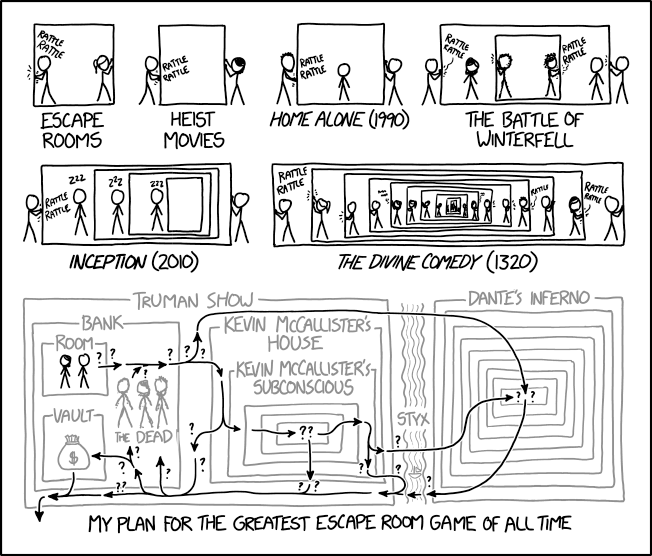 RATTLE
RATTLE
ESCAPE
ROOMS
RATTLE
RATTLE
HEIST
MOVIES
RATTLE
RATTLE
HOME ALONE (1990)
RATTLE
RATTLE
RATTLE
RATTLE
THE BATTLE OF
WINTERFELL
RATTLE
RATTLE
ZZZ
ZZZ
ZZZ
INCEPTION (2010)
RATTLE
RATTLE
RATTLE
RATTLE
RATTLE
THE DIVINE COMEDY (1320)
TRUMAN SHOW
DANTE'S INFERNO
BANK
KEVIN MCCALLISTER'S
HOUSE
ROOM
? ? ? ? ? ?
KEVIN MCCALLISTER'S
SUBCONSCIOUS
? ?
VAULT
$
THE DEAD
? ?
STYX
? ? ? ? ? ? ?
?? ? ? ?
MY PLAN FOR THE GREATEST ESCAPE ROOM GAME OF ALL TIME